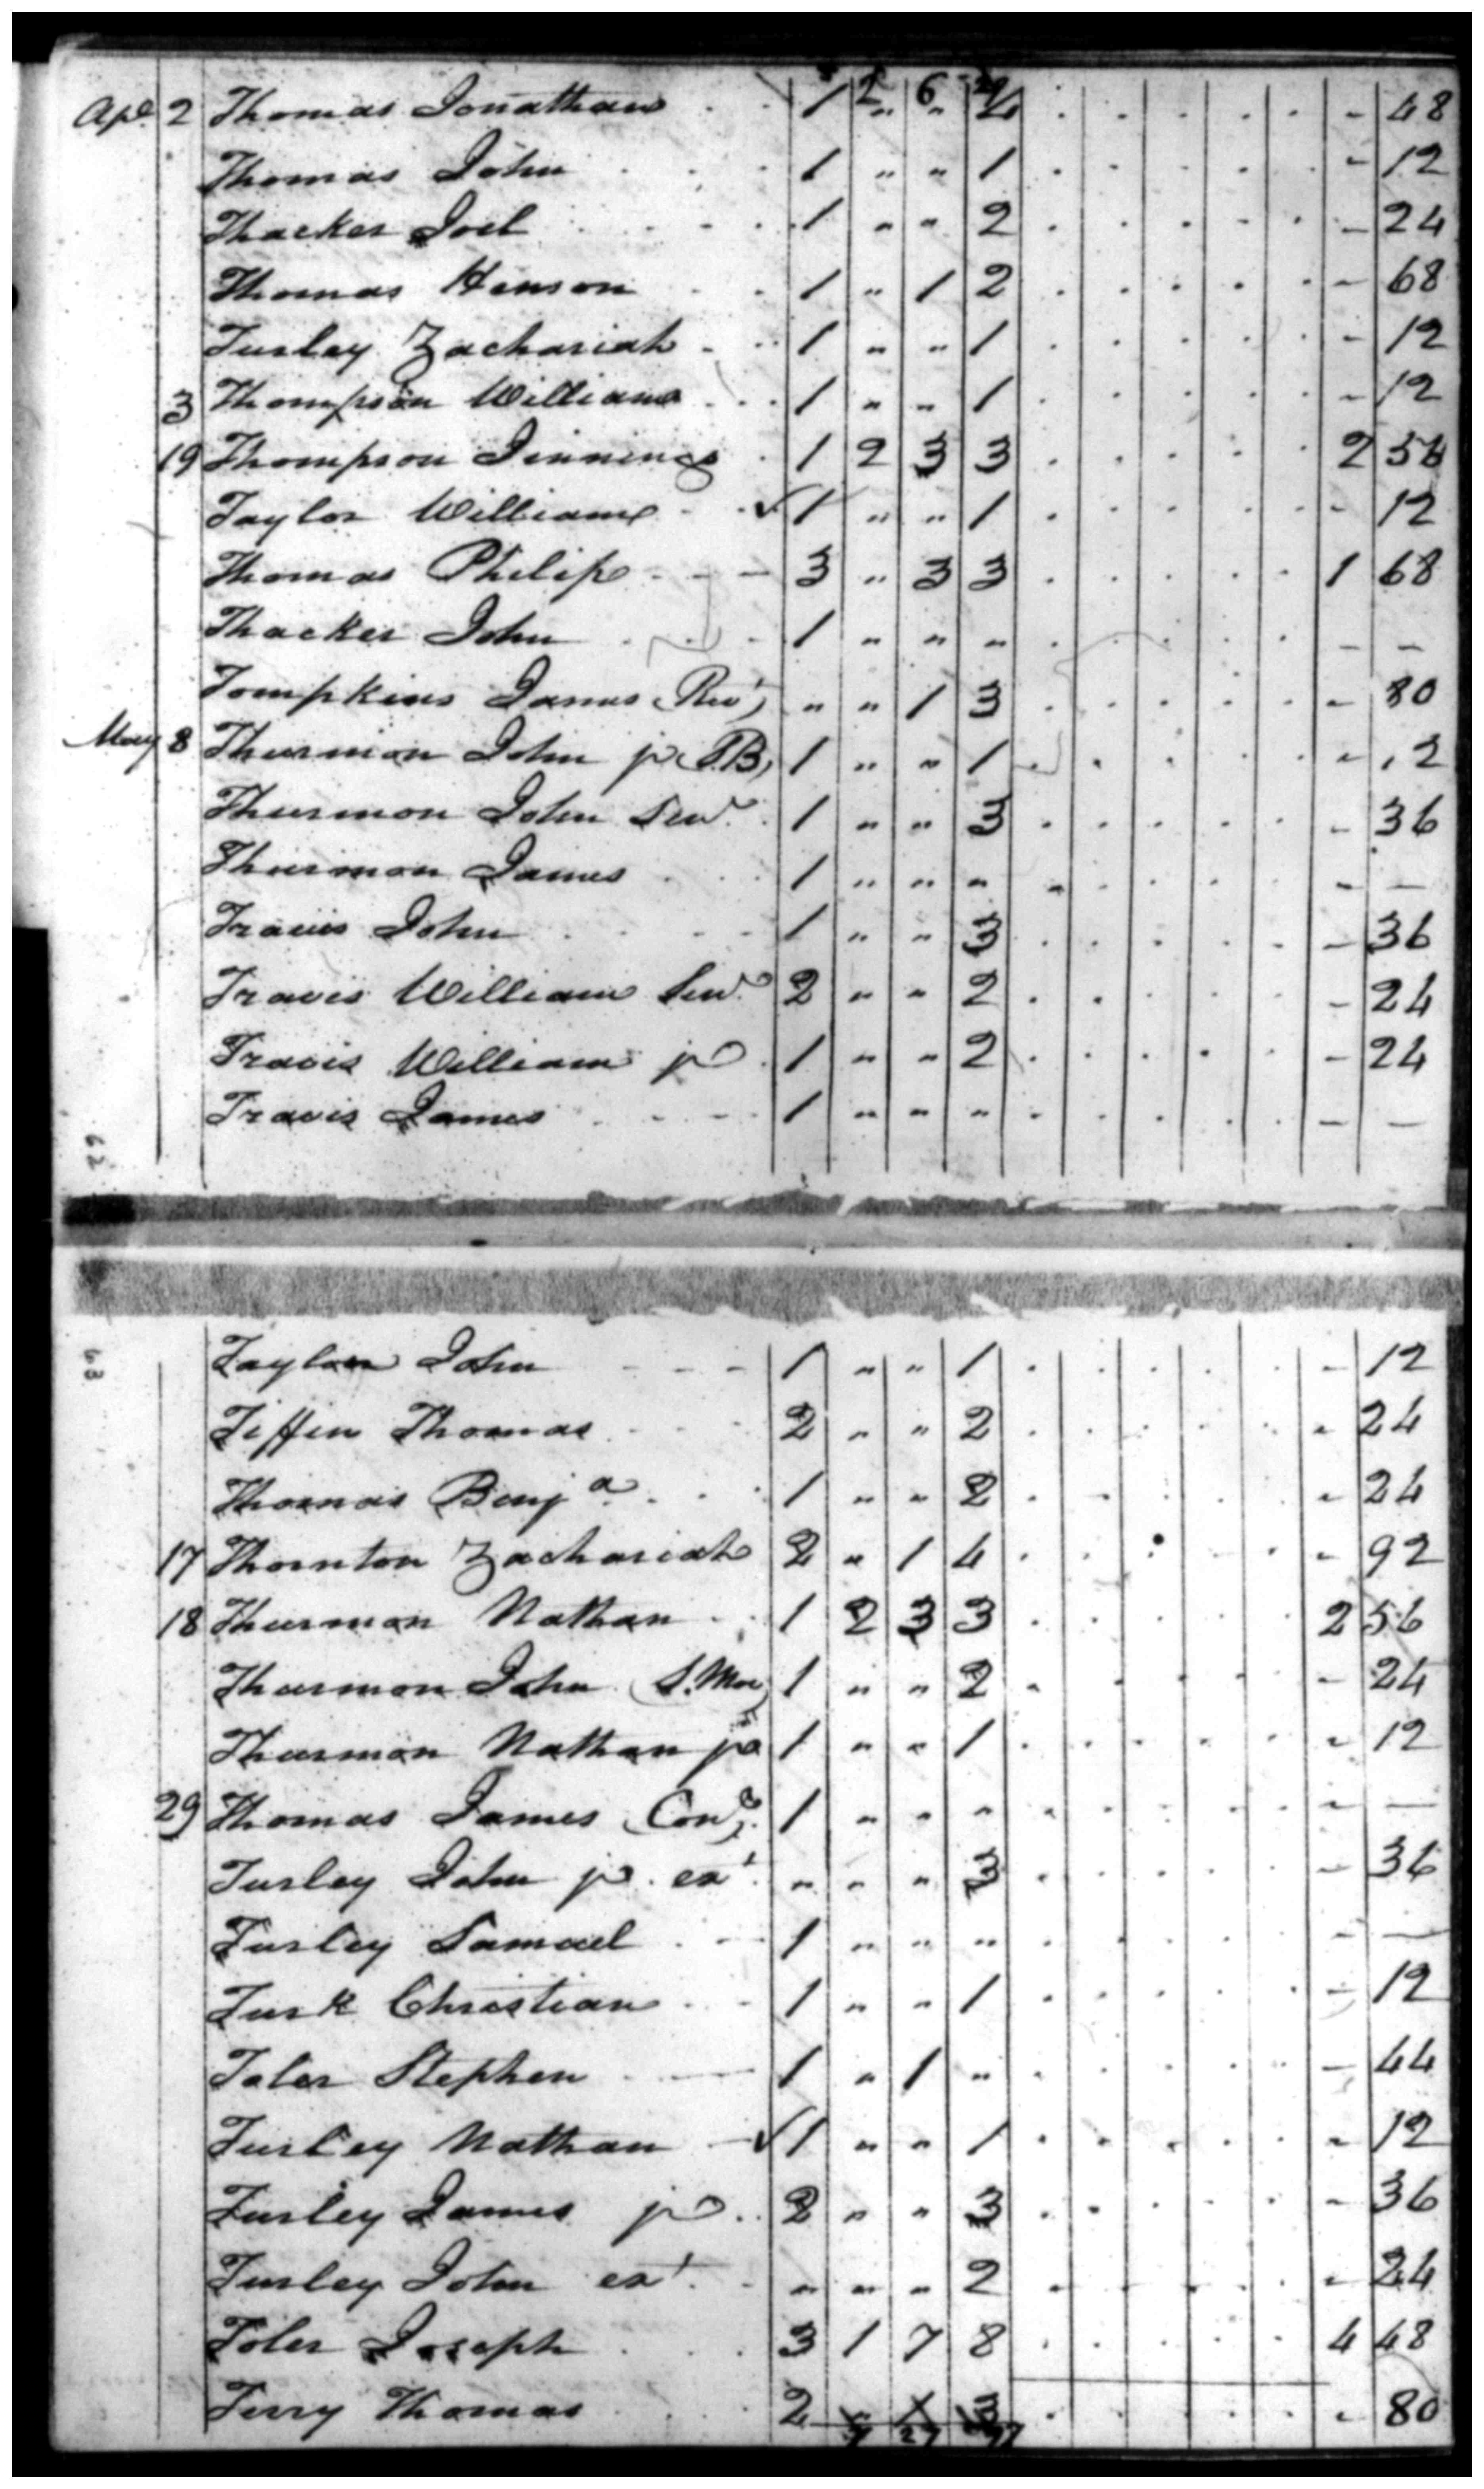 2 6 24
Apl. 2 Thomas Jonathan 1 " " 4 . . . . . - 48
Thomas John 1 " " 1 . . . . . - 12
Thacker Joel 1 " " 2 . . . . . - 24
Thomas Henson 1 " 1 2 . . . . . - 68
Turley Zachariah 1 " " 1 . . . . . - 12
3 Thompson William 1 " " 1 . . . . . - 12
19 Thompson Jinnings 1 2 3 3 . . . . . 2 56
Taylor William ✓ 1 " " 1 . . . . . - 12
Thomas Philip 3 " 3 3 . . . . . 1 68
Thacker John 1 " " " . . . . . - -
Tompkins James (Rev) " " 1 3 . . . . . - 80
May 8 Thurmon John jr (P.B) 1 " " 1 . . . . . - 12
Thurmon John Senr. 1 " " 3 . . . . . - 36
Thurmon James 1 " " " . . . . . - -
Travis John 1 " " 3 . . . . . - 36
Travis William Senr. 2 " " 2 . . . . . - 24
Travis William jr 1 " " 2 . . . . . - 24
Travis James 1 " " " . . . . . - -
62
63
Taylor John 1 " " 1 . . . . . - 12
Tiffin Thomas 2 " " 2 . . . . . - 24
Thomas Benja. 1 " " 2 . . . . . - 24
17 Thornton Zachariah 2 " 1 4 . . . . . - 92
18 Thurmon Nathan 1 2 3 3 . . . . . 2 56
Thurmon John (S. Mo) 1 " " 2 . . . . . - 24
Thurmon Nathan jr 1 " " 1 . . . . . - 12
29 Thomas James (Cone) 1 " " " . . . . . - -
Turley John jr. ext. " " " 3 . . . . . - 36
Turley Samuel 1 " " " . . . . . - -
Turk Christian 1 " " 1 . . . . . - 12
Toler Stephen 1 " 1 " . . . . . - 44
Turley Nathan ✓ 1 " " 1 . . . . . - 12
Turley James jr 2 " " 3 . . . . . - 36
Turley John ext. " " " 2 . . . . . - 24
Toler Joseph 3 1 7 8 . . . . . 4 48
Terry Thomas 2 " 1 3 . . . . . - 80
27